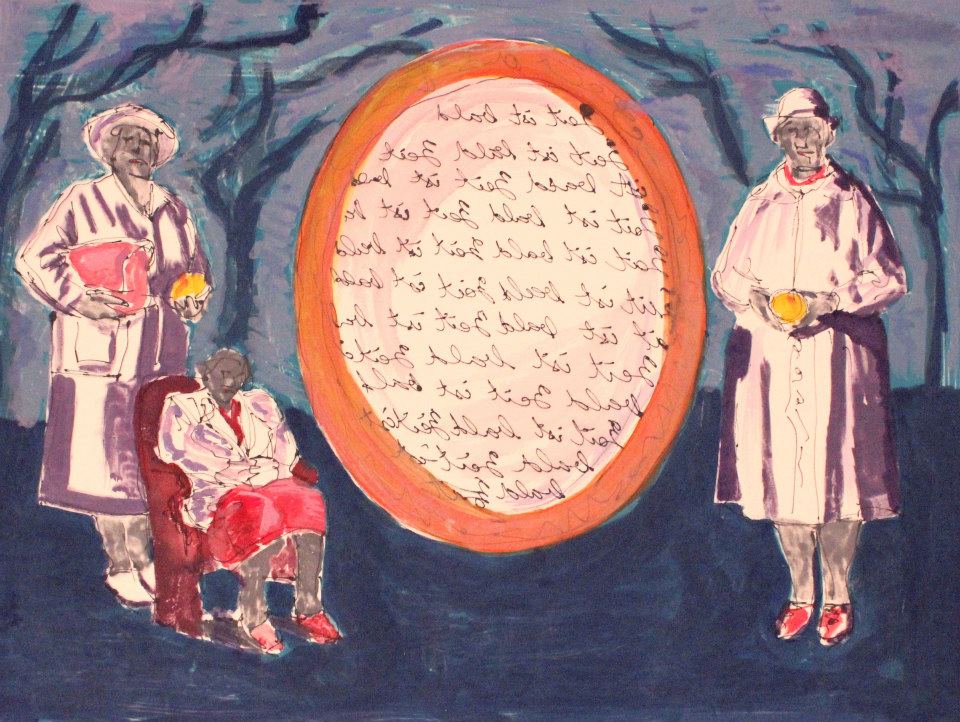 Zeit ist bald
Zeit ist bald Zeit
ist bald Zeit ist bald
Zeit ist bald Zeit ist ba
Zeit ist bald Zeit ist bald
Zeit ist bald Zeit ist bald
ist bald Zeit ist ba
Zeit ist bald Zeit
bald Zeit ist bald
Zeit ist bald Zeit ist
bald Zeit ist
bald Ze